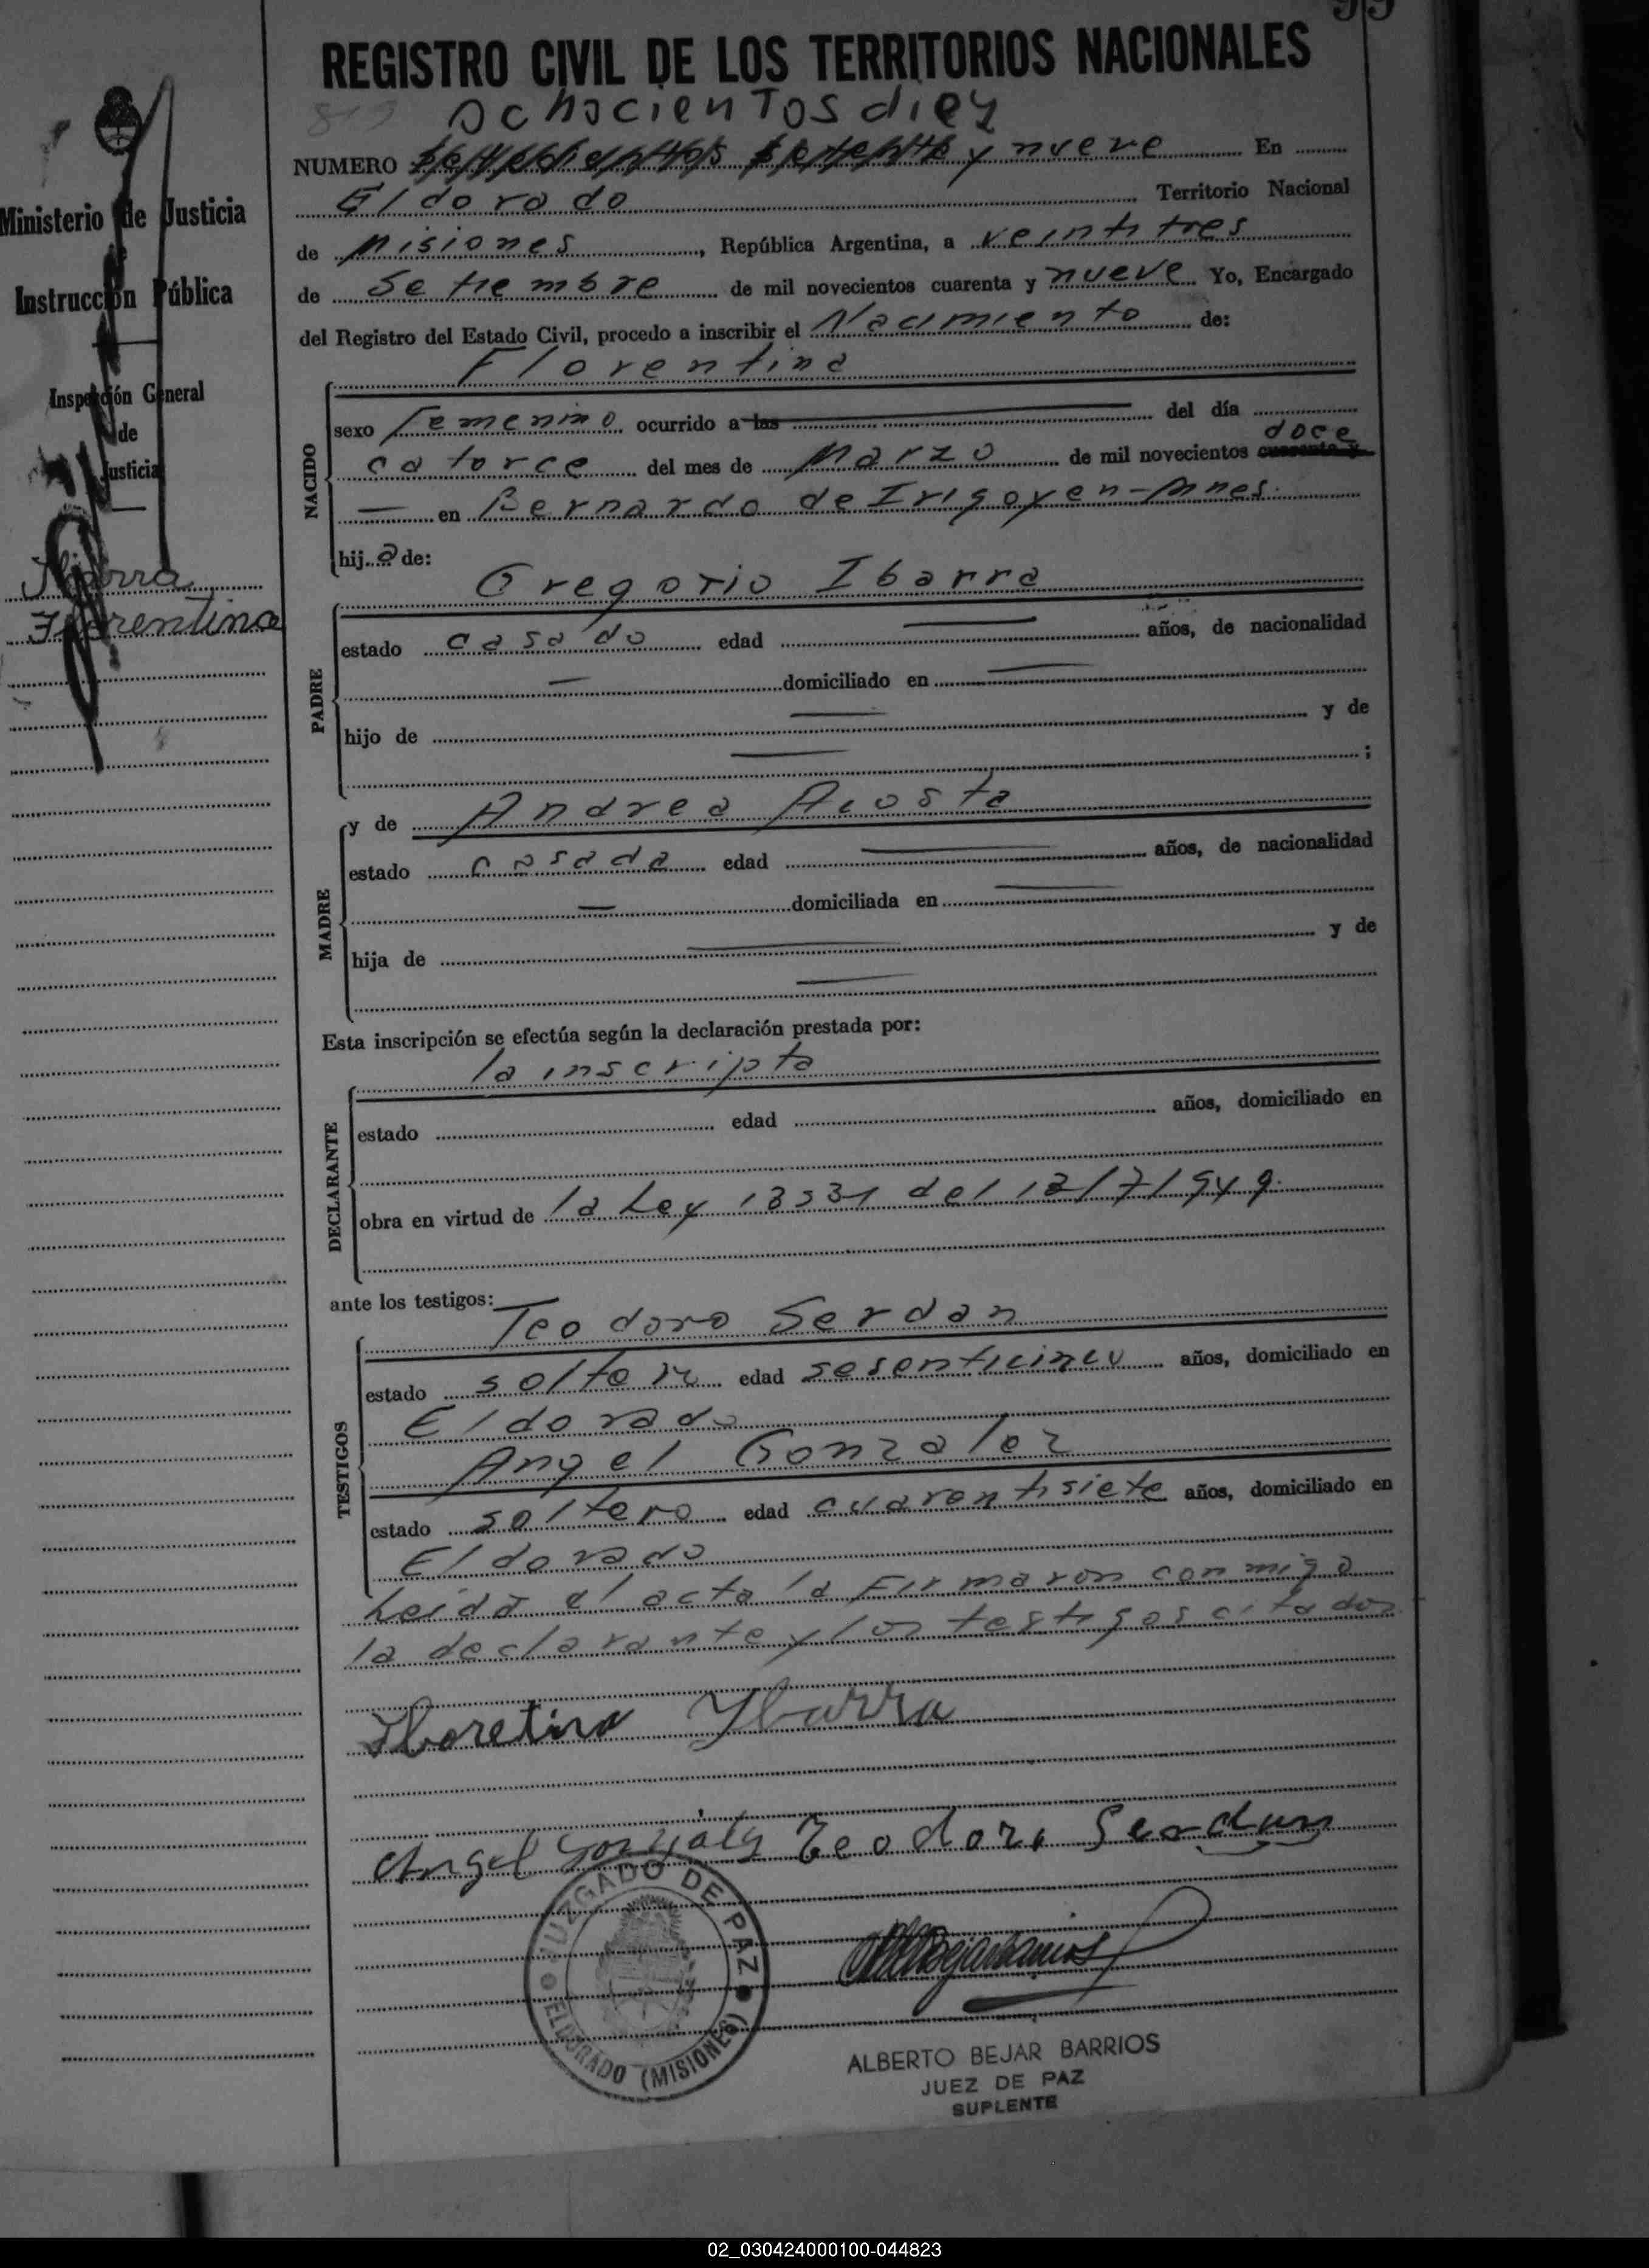 REGISTRO CIVIL DE LOS TERRITORIOS NACIONALES
ochocientos diez
NUMERO y nueve En
Eldorado Territorio Nacional
de Misiones, República Argentina, a veintitres
de Setiembre de mil novecientos cuarenta y nueve Yo, Encargado
del Registro del Estado Civil, procedo a inscribir el Nacimiento de:
Florentina
NACIDO
sexo Femenino ocurrido a las del día
doce
catorce del mes de Marzo de mil novecientos cuarenta y
en Bernardo de Irigoyen-Mnes.
hija de:
Gregorio Ibarra
PADRE
estado casado edad años, de nacionalidad
domiciliado en
hijo de y de
;
y de Andrea Acosta
MADRE
estado casada edad años, de nacionalidad
domiciliada en
hija de y de
Esta inscripción se efectúa según la declaración prestada por:
la inscripta
DECLARANTE
estado edad años, domiciliado en
obra en virtud de la Ley del
ante los testigos:
Teodoro Serdan
TESTIGOS
estado soltero edad sesenticinco años, domiciliado en
Eldorado
Angel Gonzalez
estado soltero edad cuarentisiete años, domiciliado en
Eldorado
Leida el acta la Firmaron conmigo
la declarante y los testigos citados
Floretina Ybarra
Angel Teodoro Serdan
JUZGADO DE PAZ
ELDORADO (MISIONES)
ALBERTO BEJAR BARRIOS
JUEZ DE PAZ
SUPLENTE
Ministerio de Justicia
Instrucción Pública
Inspección General
de
Justicia
Ibarra
Florentina
02_030424000100-044823